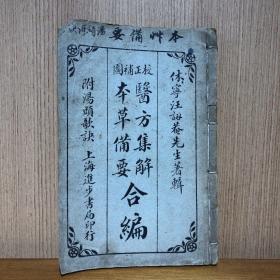 本艸備要
湯頭歌訣
休寧汪訒菴先生著輯
校正補圖
醫方集解
本草備要
合編
附湯頭歌訣
上海進步書局印行